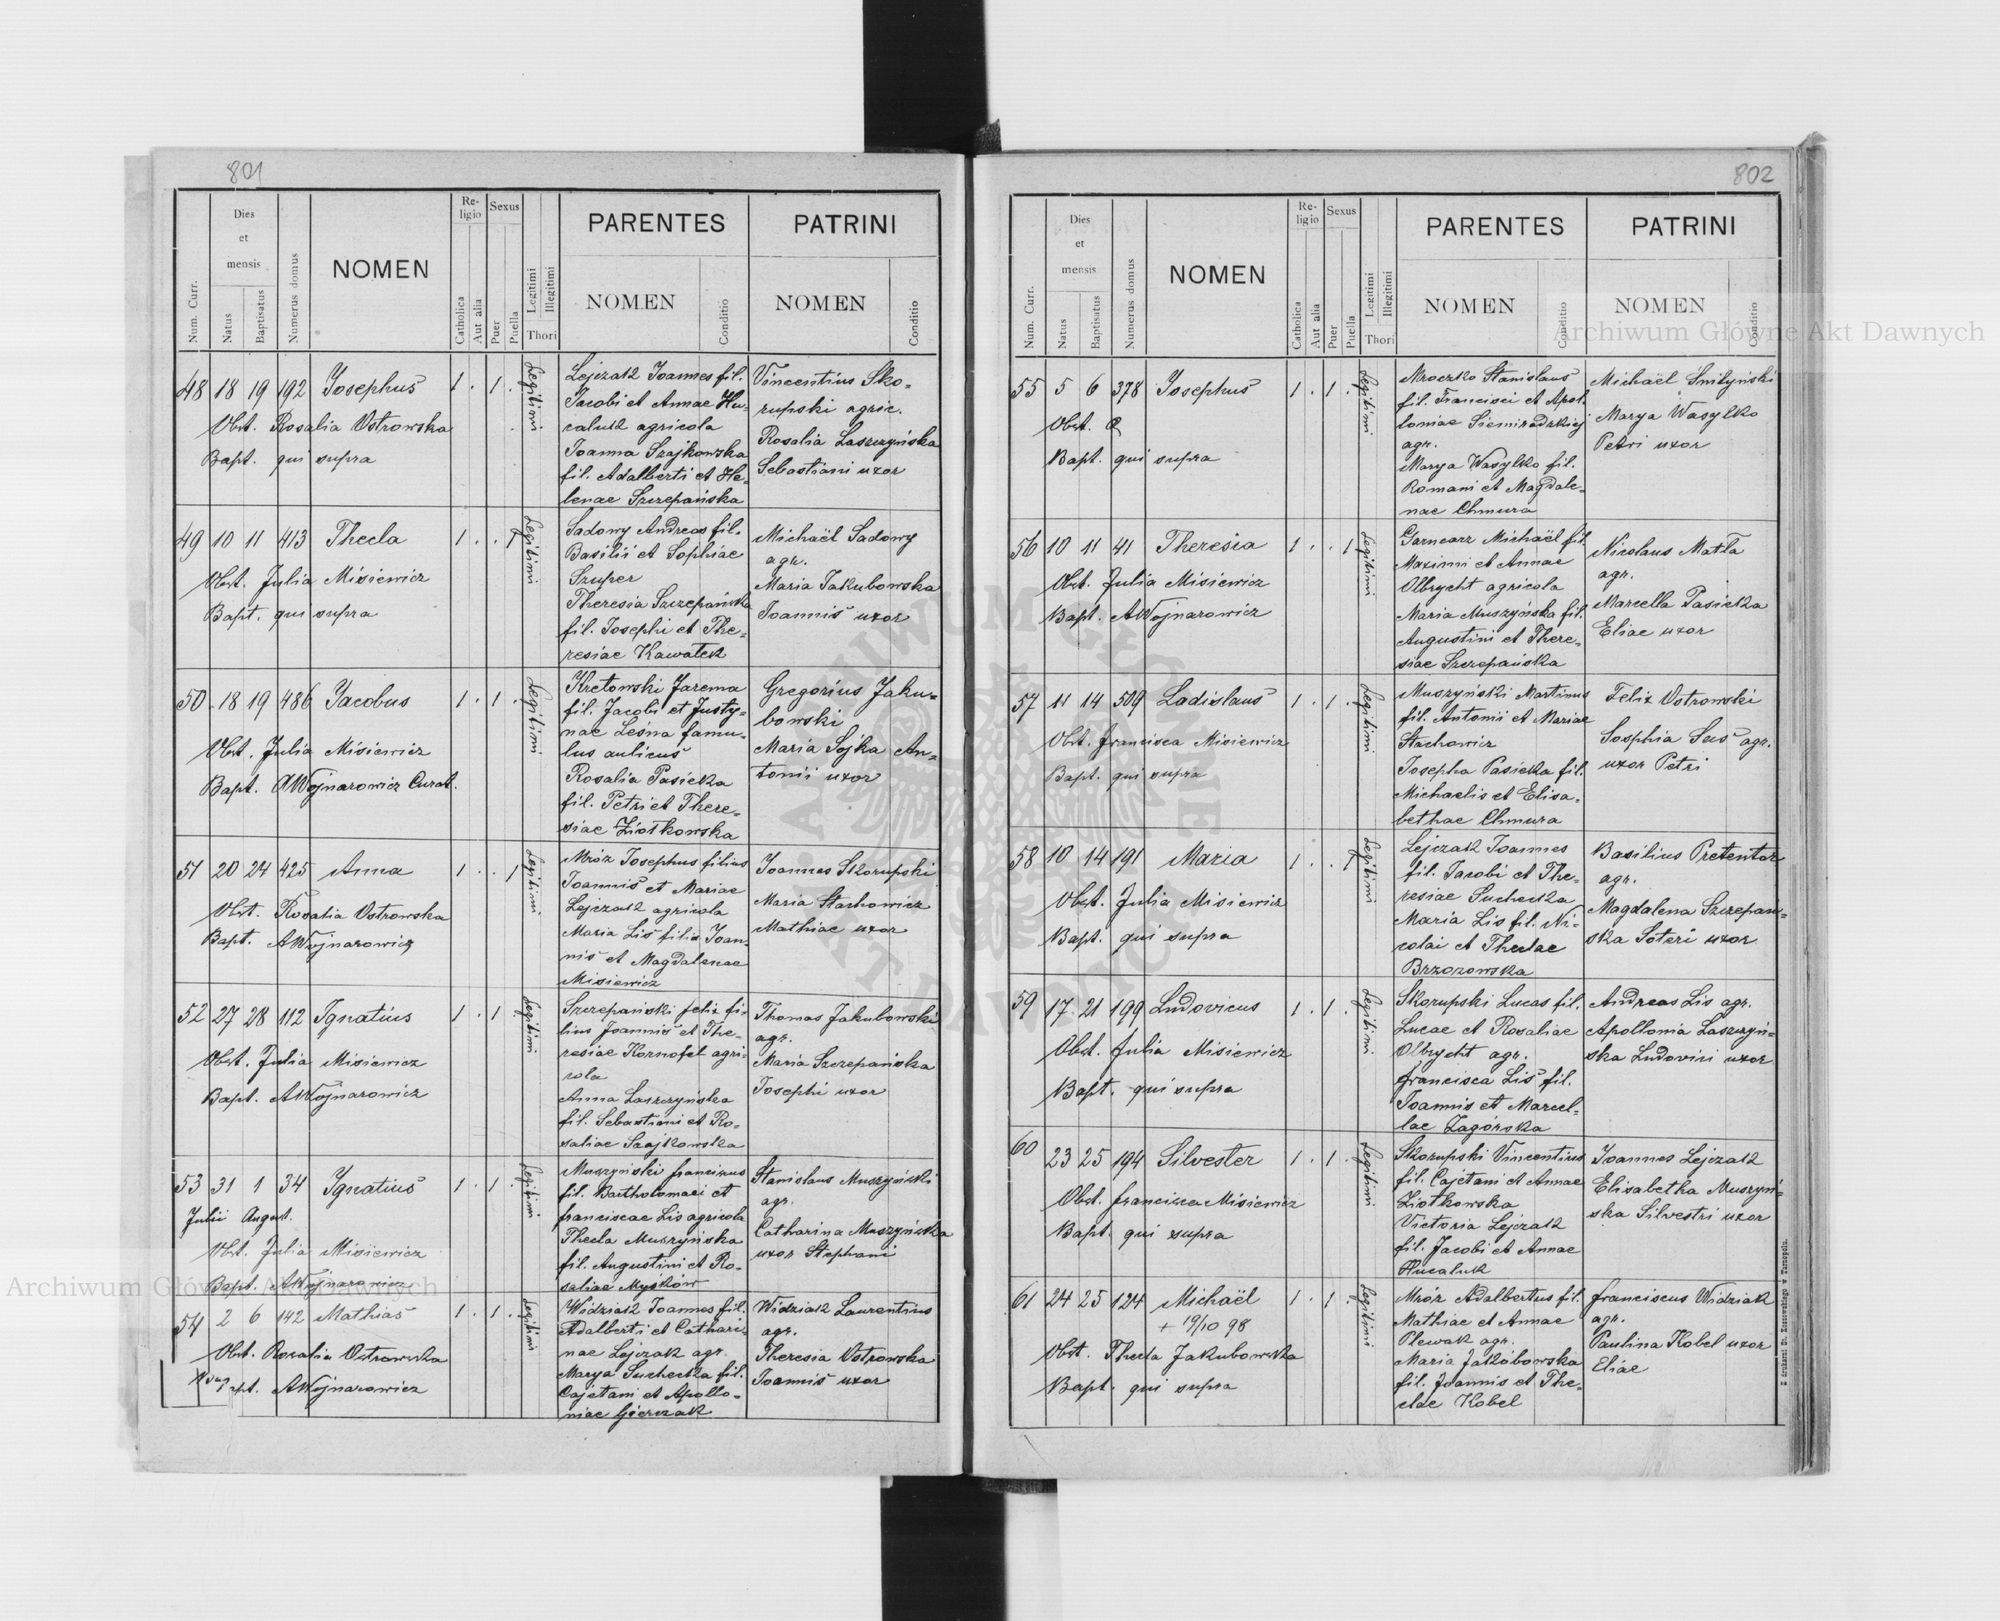 801
Num. Curr.
Dies
et
mensis
Natus
Baptisatus
Numerus domus
NOMEN
Re-
ligio
Catholica
Aut alia
Sexus
Puer
Puella
Legitimi
Illegitimi
Thori
PARENTES
NOMEN
Conditio
PATRINI
NOMEN
Conditio
48 18 19 192 Josephus 1 . 1 .
Obst. Rosalia Ostrowska
Bapt. qui supra
Legitimi
Lejczak Joannes fil.
Jacobi et Annae Hu-
caluk agricola
Joanna Szajkowska
fil. Adalberti et He-
lenae Szczepańska
Vincentius Sko-
rupski agric.
Rosalia Laszczyńska
Sebastiani uxor
49 10 11 413 Thecla 1 . . 1
Obst. Julia Misiewicz
Bapt. qui supra
Legitimi
Sadowy Andreas fil.
Basilii et Sophiae
Szuper
Theresia Szczepańska
fil. Josephi et The-
resiae Kawałek
Michaël Sadowy
agr.
Maria Jakubowska
Joannis uxor
50 18 19 486 Jacobus 1 . 1 .
Obst. Julia Misiewicz
Bapt. AWojnarowicz Curat.
Legitimi
Kretowski Jarema
fil. Jacobi et Justy-
nae Leśna famu-
lus aulicus
Rosalia Pasieka
fil. Petri et There-
siae Ziołkowska
Gregorius Jaku-
bowski
Maria Sojka An-
tonii uxor
51 20 24 425 Anna 1 . . 1
Obst. Rosalia Ostrowska
Bapt. AWojnarowicz
Legitimi
Mróz Josephus filius
Joannis et Mariae
Lejczak agricola
Maria Lis filia Joan-
nis et Magdalenae
Misiewicz
Joannes Skorupski
Maria Stachowicz
Mathiae uxor
52 27 28 112 Ignatius 1 . 1
Obst. Julia Misiewicz
Bapt. AWojnarowicz
Legitimi
Szczepański felix fi-
lius Joannis et The-
resiae Kornofel agri-
cola
Anna Laszczyńska
fil. Sebastiani et Ro-
saliae Szajkowska
Thomas Jakubowski
agr.
Maria Szczepańska
Josephi uxor
53 31 1 34 Ignatius 1 . 1 .
Julii August.
Obst. Julia Misiewicz
Bapt. AWojnarowicz
Legitimi
Muszyński franciscus
fil. Bartholomaei et
franciscae Lis agricola
Thecla Muszyńska
fil. Augustini et Ro-
saliae Myśków
Stanislaus Muszyński
agr.
Catharina Muszyńska
uxor Stephani
54 2 6 142 Mathias 1 . 1 .
Obst. Rosalia Ostrowska
Bapt. AWojnarowicz
Legitimi
Widziak Joannes fil.
Adalberti et Cathari-
nae Lejczak agr.
Marya Suchecka fil.
Cajetani et Apollo-
niae Gierczak
Widziak Laurentius
agr.
Theresia Ostrowska
Joannis uxor
802
Num. Curr.
Dies
et
mensis
Natus
Baptisatus
Numerus domus
NOMEN
Re-
ligio
Catholica
Aut alia
Sexus
Puer
Puella
Legitimi
Illegitimi
Thori
PARENTES
NOMEN
Conditio
PATRINI
NOMEN
Conditio
55 5 6 378 Josephus 1 . 1 .
Obst.
Bapt. qui supra
Legitimi
Mroczko Stanislaus
fil. Francisci et Apol-
loniae Siemiradzkiej
agr.
Marya Wasylko fil.
Romani et Magdale-
nae Chmura
Michaël Smiłyński
Marya Wasylko
Petri uxor
56 10 11 41 Theresia 1 . . 1
Obst. Julia Misiewicz
Bapt. AWojnarowicz
Legitimi
Garncarz Michaël fil.
Maximi et Annae
Olbrycht agricola
Maria Muszyńska fil.
Augustini et There-
siae Szczepańska
Nicolaus Matła
agr.
Marcella Pasieka
Eliae uxor
57 11 14 509 Ladislaus 1 . 1 .
Obst. Francisca Misiewicz
Bapt. qui supra
Legitimi
Muszyński Martinus
fil. Antonii et Mariae
Stachowicz
Josepha Pasieka fil.
Michaelis et Elisa-
bethae Chmura
Felix Ostrowski
Sosphia Sus agr.
uxor Petri
58 10 14 191 Maria 1 . . 1
Obst. Julia Misiewicz
Bapt. qui supra
Legitimi
Lejczak Joannes
fil. Jacobi et The-
resiae Suchecka
Maria Lis fil. Ni-
colai et Theclae
Brzozowska
Basilius Pretentor
agr.
Magdalena Szczepań-
ska Soteri uxor
59 17 21 199 Ludovicus 1 . 1 .
Obst. Julia Misiewicz
Bapt. qui supra
Legitimi
Skorupski Lucas fil.
Lucae et Rosaliae
Olbrycht agr.
francisca Lis fil.
Joannis et Marcel-
lae Zagórska
Andreas Lis agr.
Apollonia Laszczyń-
ska Ludovici uxor
60 23 25 194 Silvester 1 . 1 .
Obst. francisca Misiewicz
Bapt. qui supra
Legitimi
Skorupski Vincentius
fil. Cajetani et Annae
Ziołkowska
Victoria Lejczak
fil. Jacobi et Annae
Hucaluk
Joannes Lejczak
Elisabetha Muszyń-
ska Silvestri uxor
61 24 25 124 Michaël 1 . 1 .
+ 19/10 98
Obst. Thecla Jakubowska
Bapt. qui supra
Legitimi
Mróz Adalbertus fil.
Mathiae et Annae
Plewak agr.
Maria Jakóbowska
fil. Joannis et The-
clae Kobel
franciscus Widziak
agr.
Paulina Kobel uxor
Eliae
Z drukarni St. Kossowskiego w Tarnopolu.
Archiwum Główne Akt Dawnych
Archiwum Główne Akt Dawnych
ARCHIWUM GŁÓWNE AKT DAWNYCH